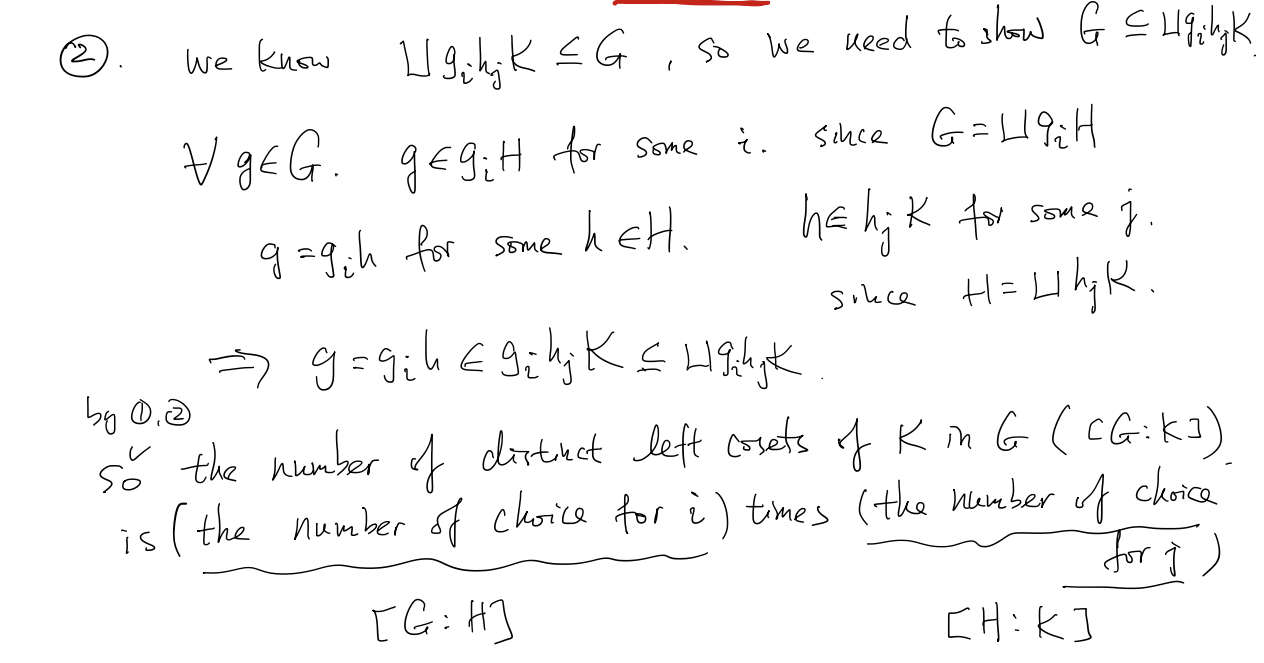 ②. we know ⊔gᵢhⱼK ⊆ G , so we need to show G ⊆ ⊔gᵢhⱼK.
∀ g∈G. g∈gᵢH for some i. since G=⊔gᵢH
g=gᵢh for some h∈H. h∈hⱼK for some j.
since H=⊔hⱼK.
⇒ g=gᵢh ∈ gᵢhⱼK ⊆ ⊔gᵢhⱼK.
by ①,②
so the number of distinct left cosets of K in G ([G:K])
is (the number of choice for i) times (the number of choice
for j)
[G:H] [H:K]